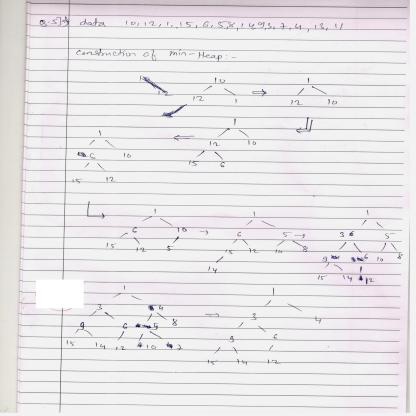 Q.5] data 10, 12, 1, 15, 6, 5, 8, 14, 9, 3, 7, 4, 13, 11
construction of min-Heap:-
10
12 1
⇒
1
12 10
1
12 10
15 6
⇐
1
6 10
15 12
1
6 10
15 12 5
→
1
6 5
15 12 10 8
14
→
1
3 5
9 6 10 8
15 14 12
1
3 4
9 6 5 8
15 14 12 10 7
→
1
3 4
9 6
15 14 12